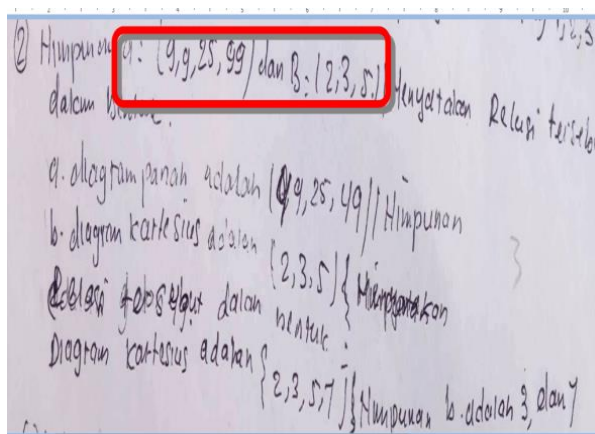 ② Himpunan a: (9,9,25,99) dan B: (2,3,5,) Menyatakan Relasi
dalam bentuk.
a. diagram panah adalah (9,25,49) | Himpunan
b. diagram kartesius adalah {2,3,5}{
Relasi tersebut dalam bentuk.
Diagram kartesius adalah {2,3,5,7}{ Himpunan b. adalah 3, dan 7